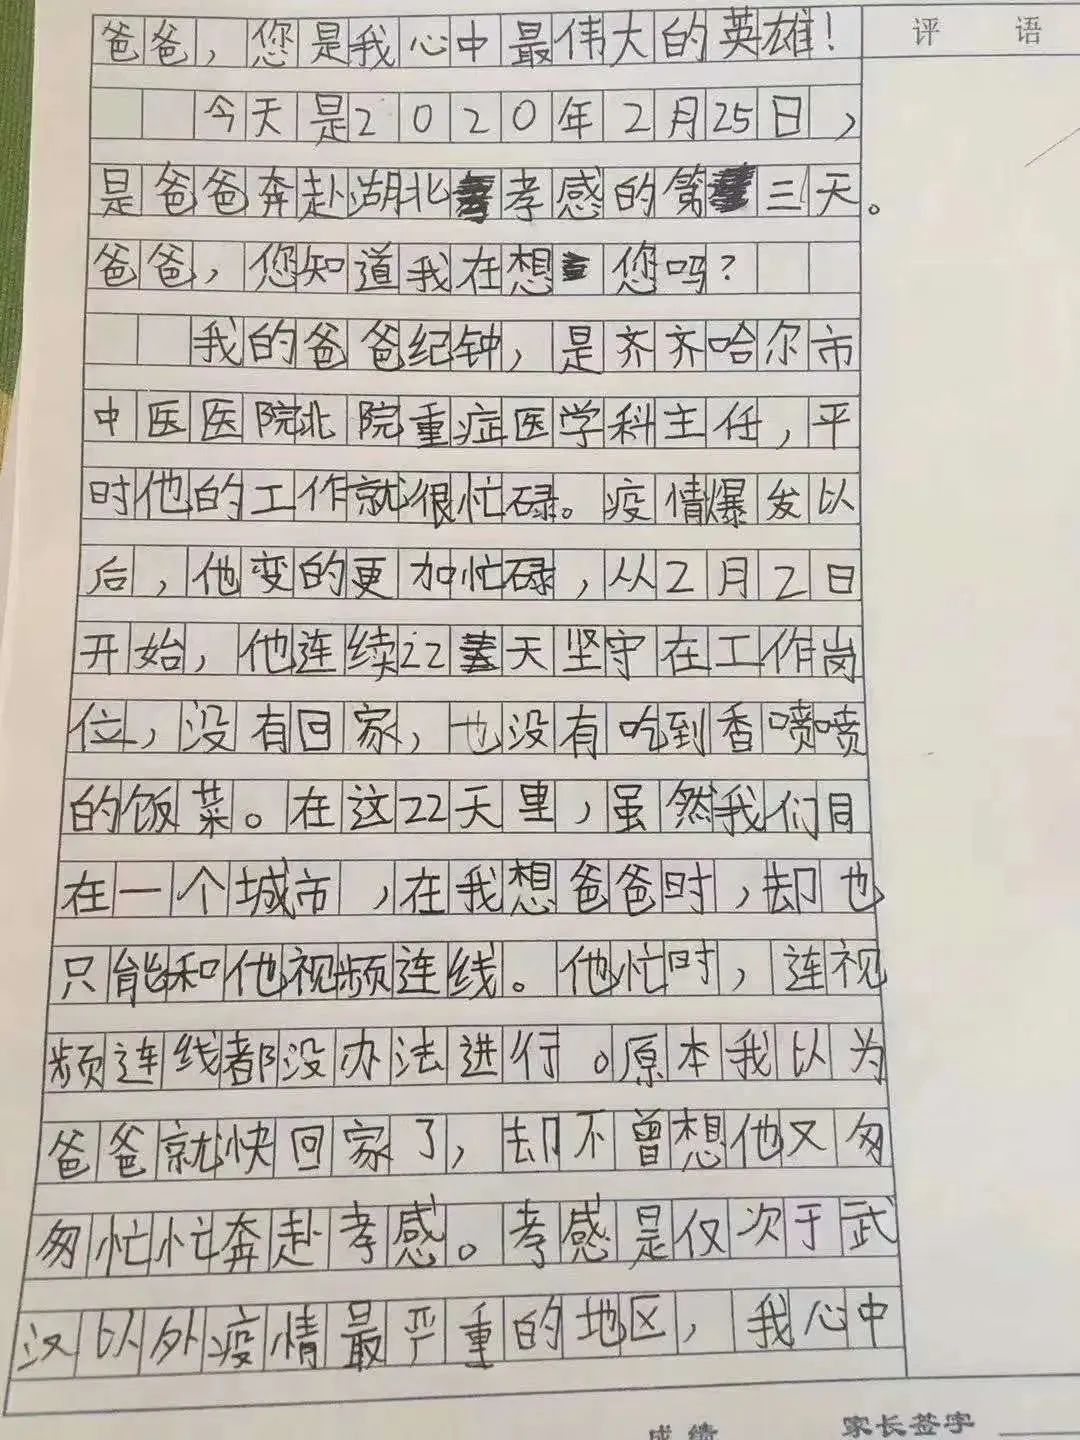 爸爸，您是我心中最伟大的英雄！
评 语
今天是2020年2月25日，
是爸爸奔赴湖北孝感的第三天。
爸爸，您知道我在想您吗？
我的爸爸纪钟，是齐齐哈尔市
中医医院北院重症医学科主任，平
时他的工作就很忙碌。疫情爆发以
后，他变的更加忙碌，从2月2日
开始，他连续22天坚守在工作岗
位，没有回家，也没有吃到香喷喷
的饭菜。在这22天里，虽然我们同
在一个城市，在我想爸爸时，却也
只能和他视频连线。他忙时，连视
频连线都没办法进行。原本我以为
爸爸就快回家了，却不曾想他又匆
匆忙忙奔赴孝感。孝感是仅次于武
汉以外疫情最严重的地区，我心中
成绩 家长签字